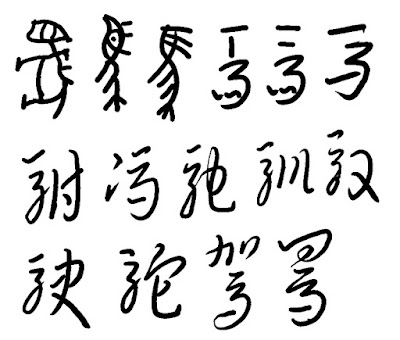 馬馬馬馬馬马
驸冯驰驯驭
驶驼驾骂